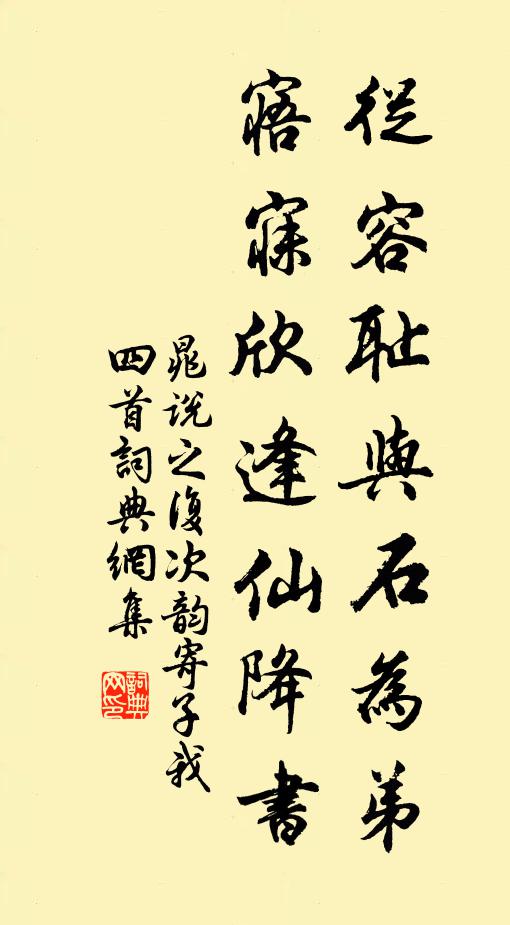 從容耻與石為弟
寤寐欣逢仙降書
晁說之復次韵寄子我
四首詞典網集
詞典網印